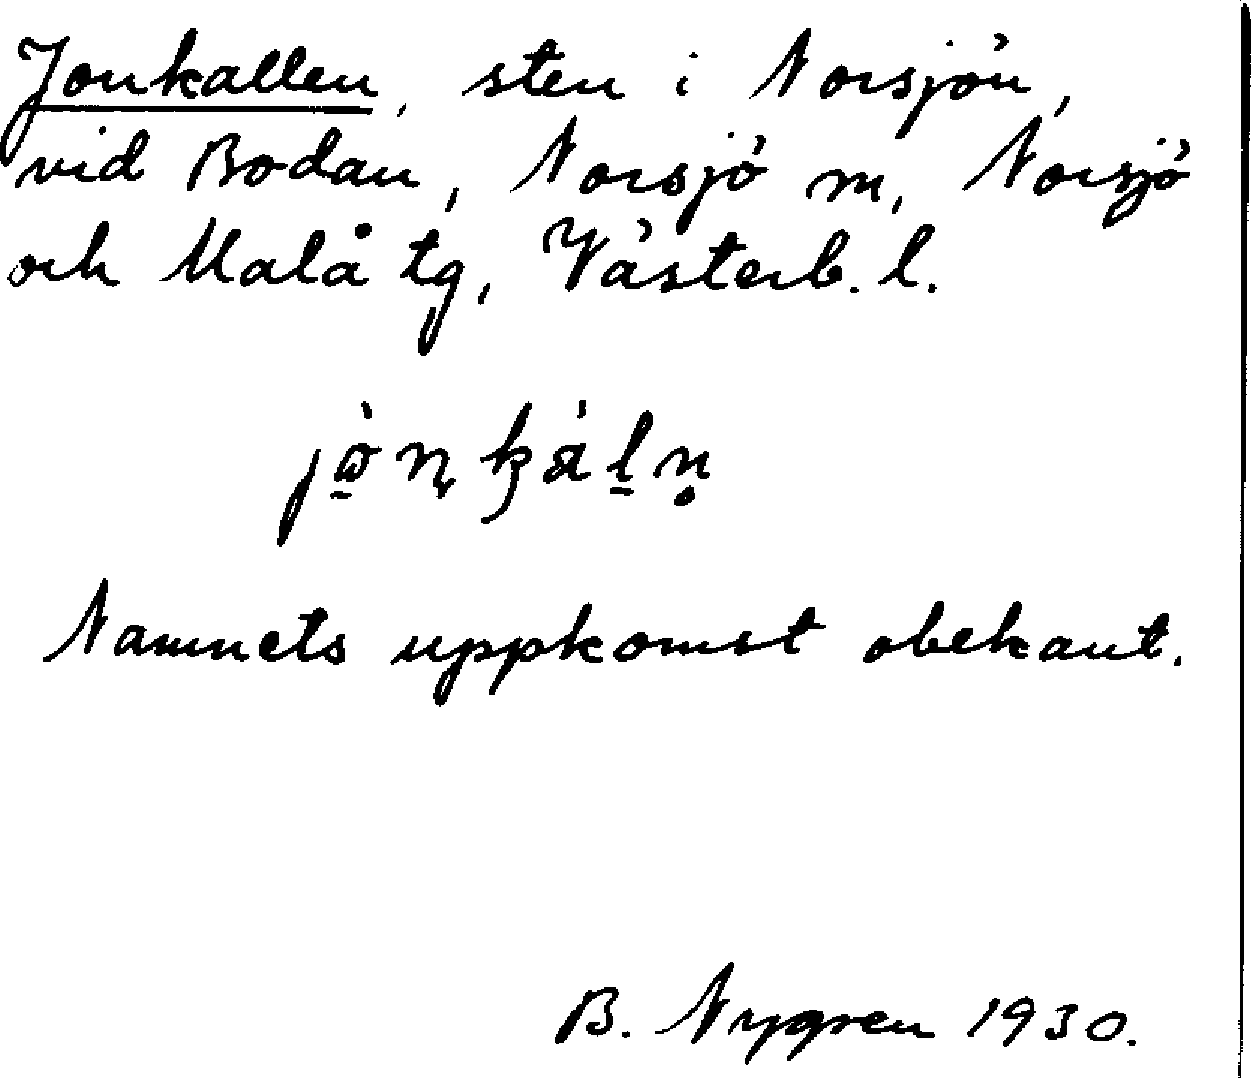 Jonkallen, sten i Norsjön,
vid Bodan, Norsjö m, Norsjö
och Malå tg, Västerb. l.
Namnets uppkomst obekant.
B. Nygren 1930.